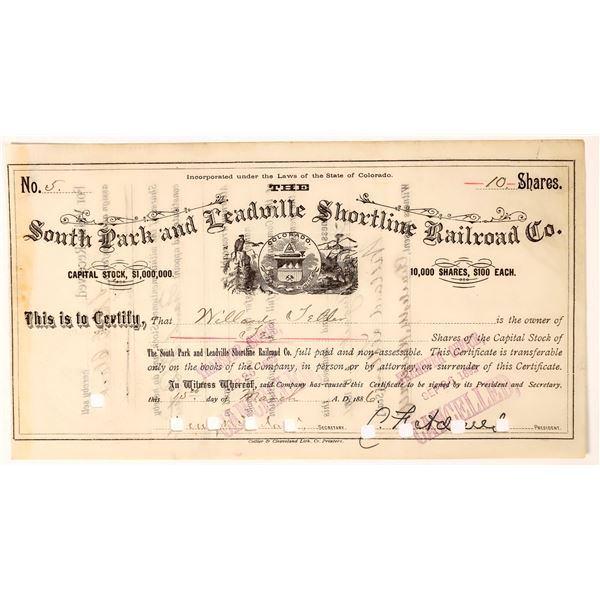 Incorporated under the Laws of the State of Colorado.
No. 5. THE —10— Shares.
South Park and Leadville Shortline Railroad Co.
CAPITAL STOCK, $1,000,000. COLORADO. 10,000 SHARES, $100 EACH.
This is to Certify, That Willard Teller is the owner of
Shares of the Capital Stock of
The South Park and Leadville Shortline Railroad Co. full paid and non-assessable. This Certificate is transferable
only on the books of the Company, in person or by attorney, on surrender of this Certificate.
In Witness Whereof, said Company has caused this Certificate to be signed by its President and Secretary,
this 15. day of March A.D. 1886
SECRETARY. PRESIDENT.
CANCELLED,
Collier & Cleaveland Lith. Co. Printers.